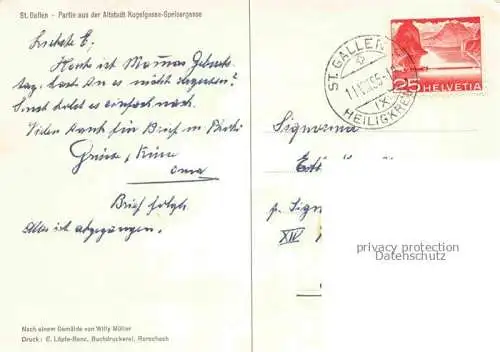 St. Gallen - Partie aus der Altstadt Kugelgasse-Speisergasse
Liebste E,
Heute ist Mamas Geburts-
tag, hast Du es nicht vergessen?
Sonst holst es einfach nach.
Vielen Dank für Brief
Grüsse, Küsse
Oma
Brief folgt.
Alles ist abgegangen.
Nach einem Gemälde von Willy Müller
Druck: E. Löpfe-Benz, Buchdruckerei, Rorschach
ST. GALLEN
HEILIGKREUZ
25 HELVETIA
Signorina
p. Sign
XIV
privacy protection
Datenschutz